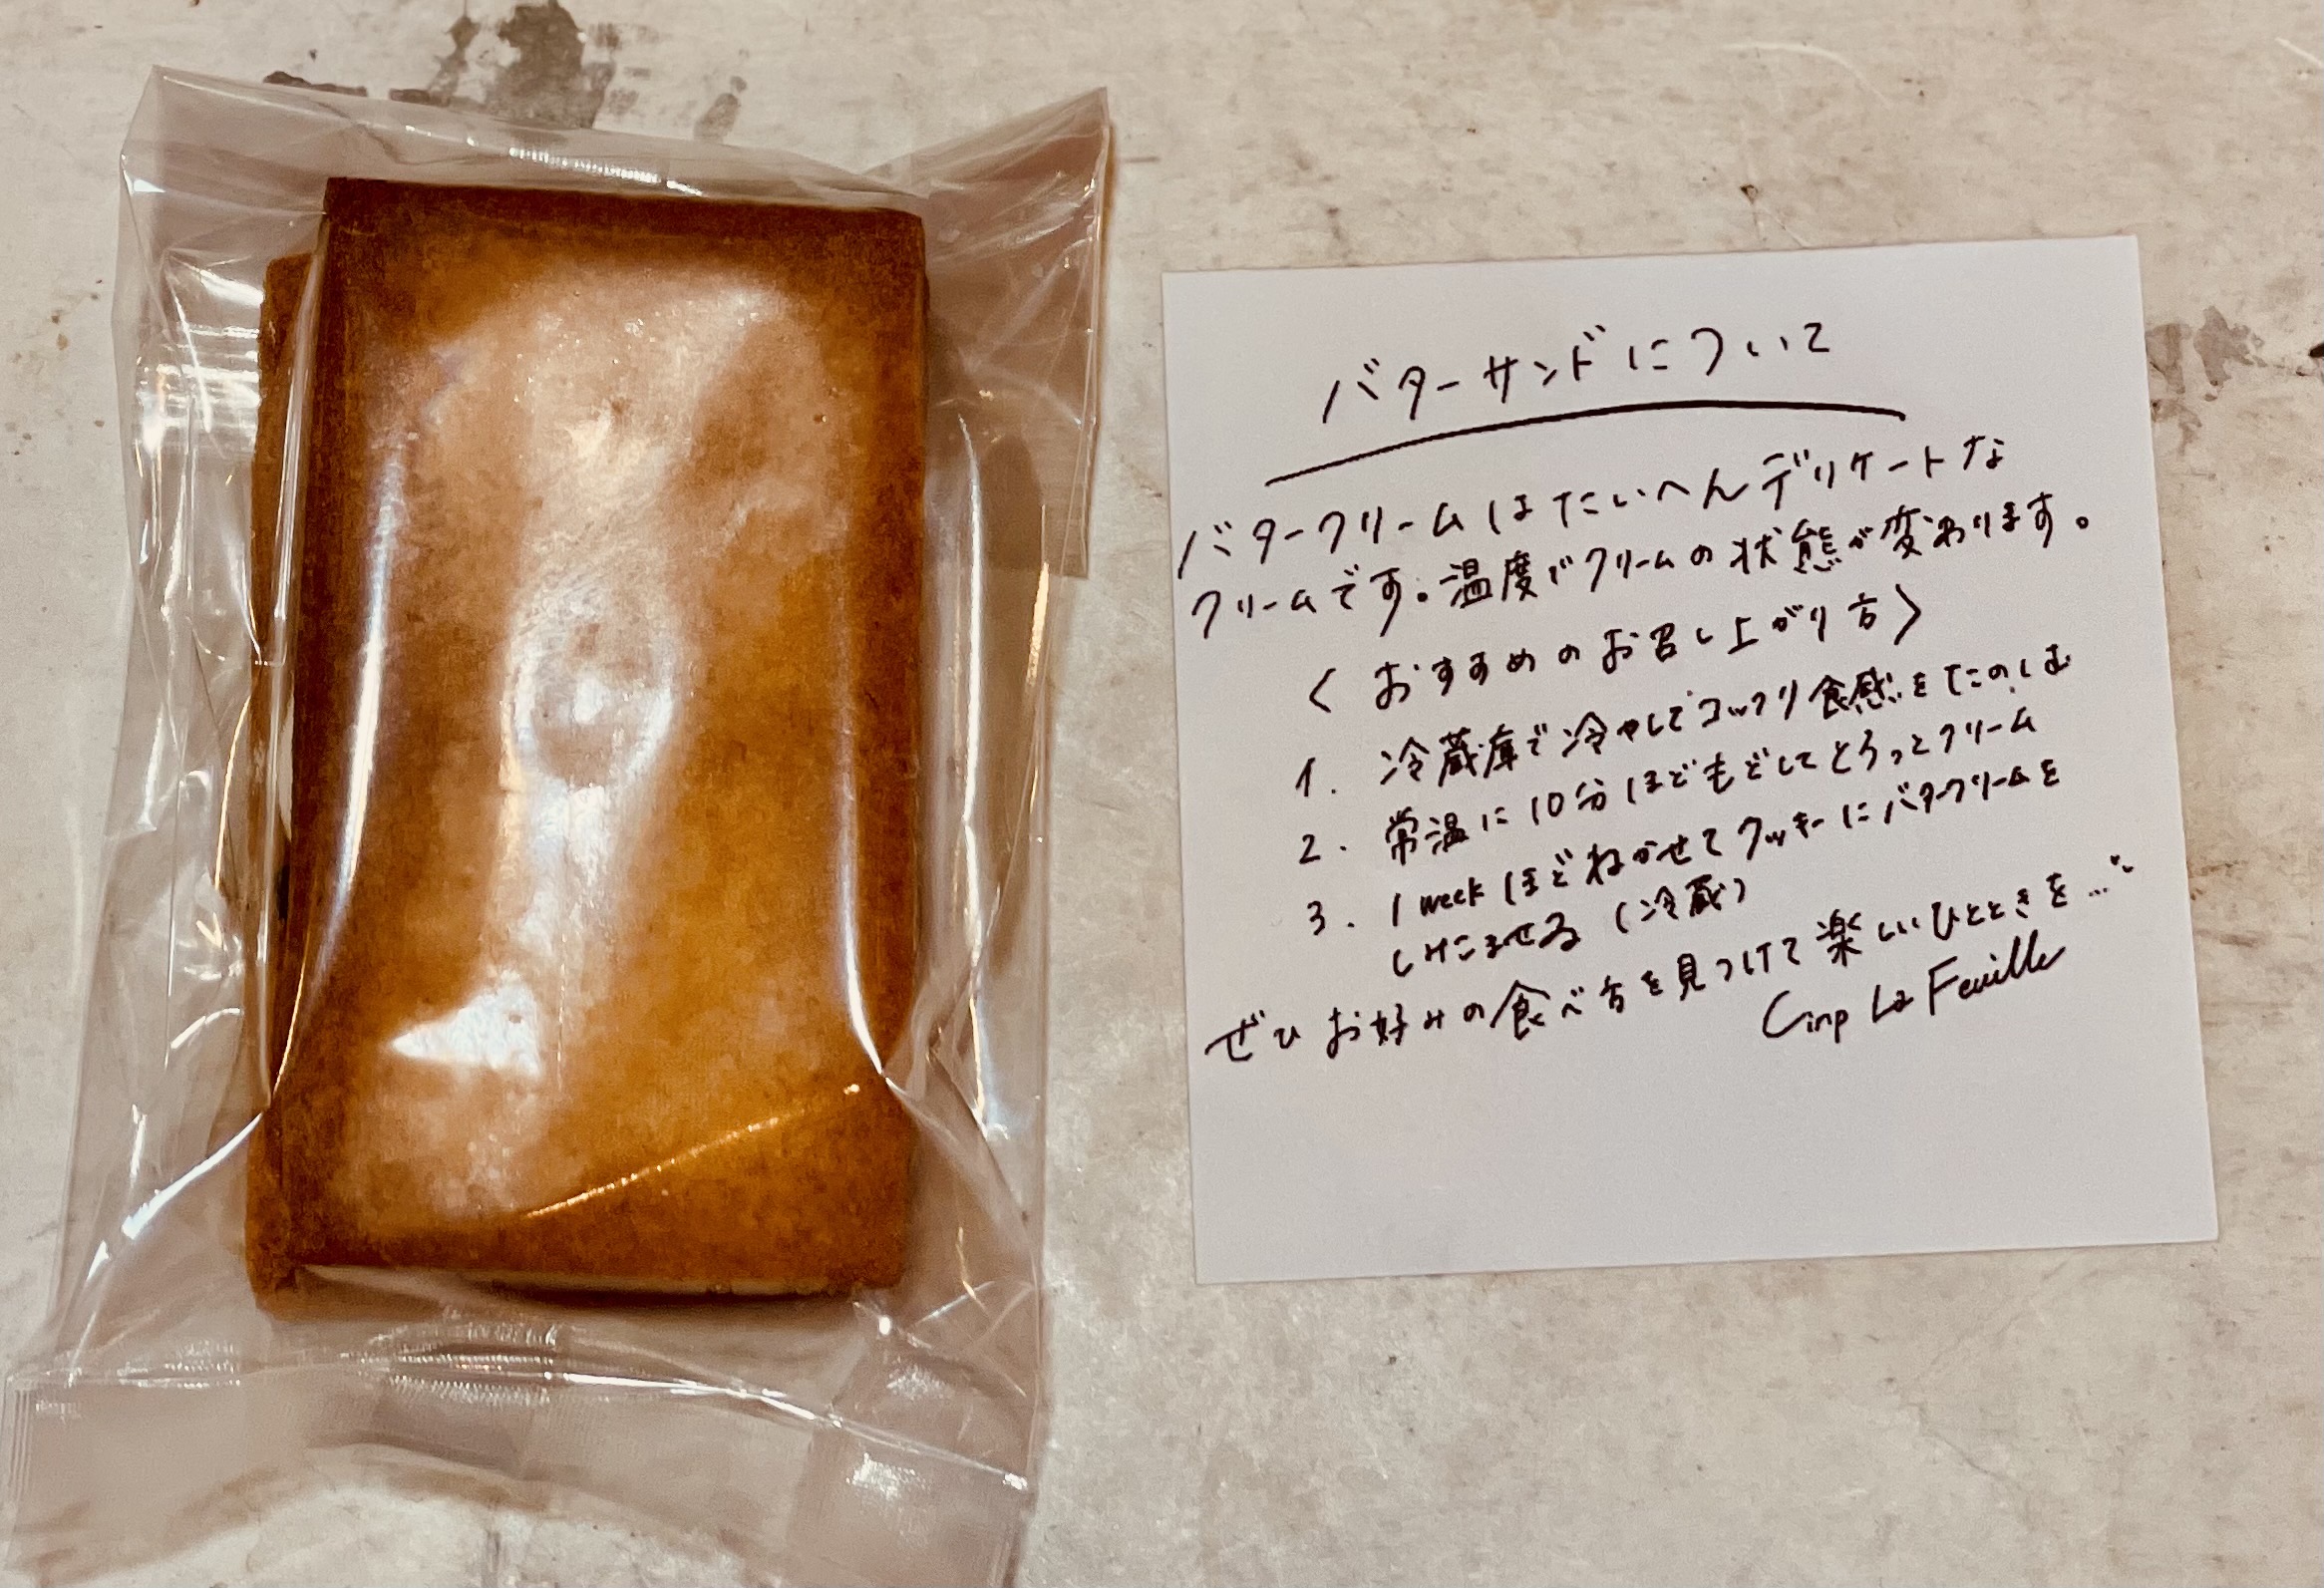 バターサンドについて
バタークリームはたいへんデリケートな
クリームです。温度でクリームの状態が変わります。
〈おすすめのお召し上がり方〉
1. 冷蔵庫で冷やしてコックリ食感をたのしむ
2. 常温に10分ほどもどしてとろっとクリーム
3. 1weekほどねかせてクッキーにバタークリームを
しみこませる(冷蔵)
ぜひお好みの食べ方を見つけて楽しいひとときを…
Cinp La Feuille